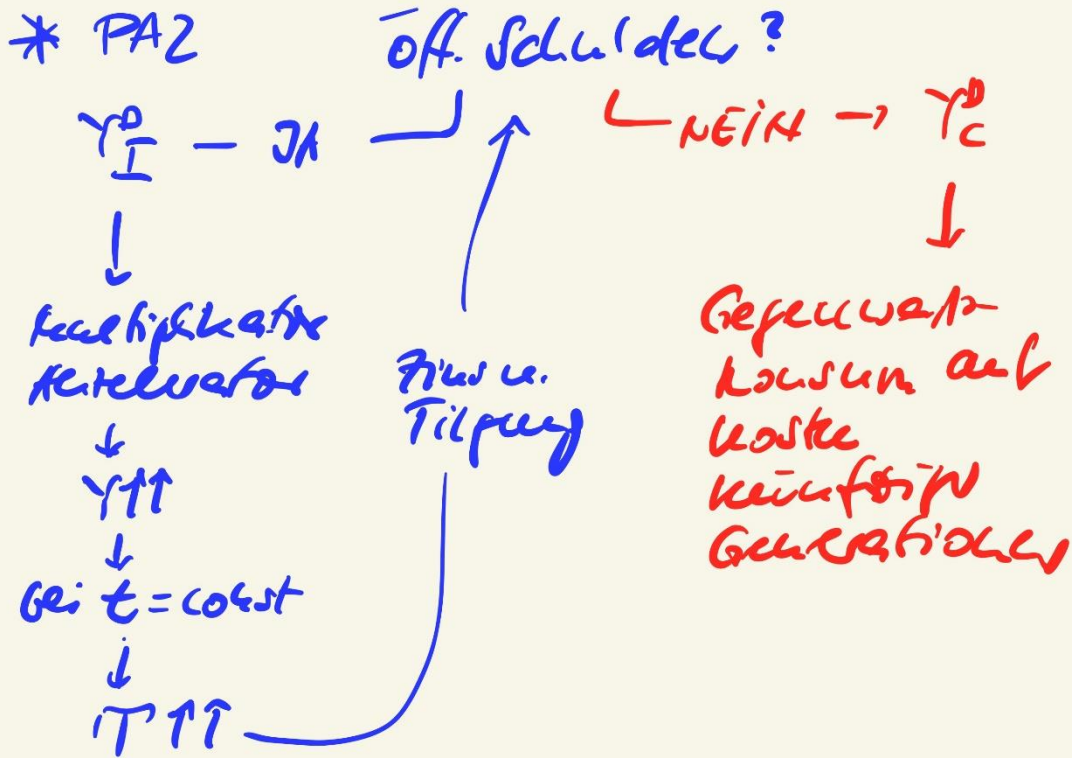 * PA2
öff. Schulden?
Y^D_I – JA
NEIN → Y^D_C
↓
↓
Multiplikator
Akzelerator
↓
Y↑↑
↓
bei t = const
↓
T↑↑
Zins u.
Tilgung
Gegenwarts-
konsum auf
Kosten
künftiger
Generationen